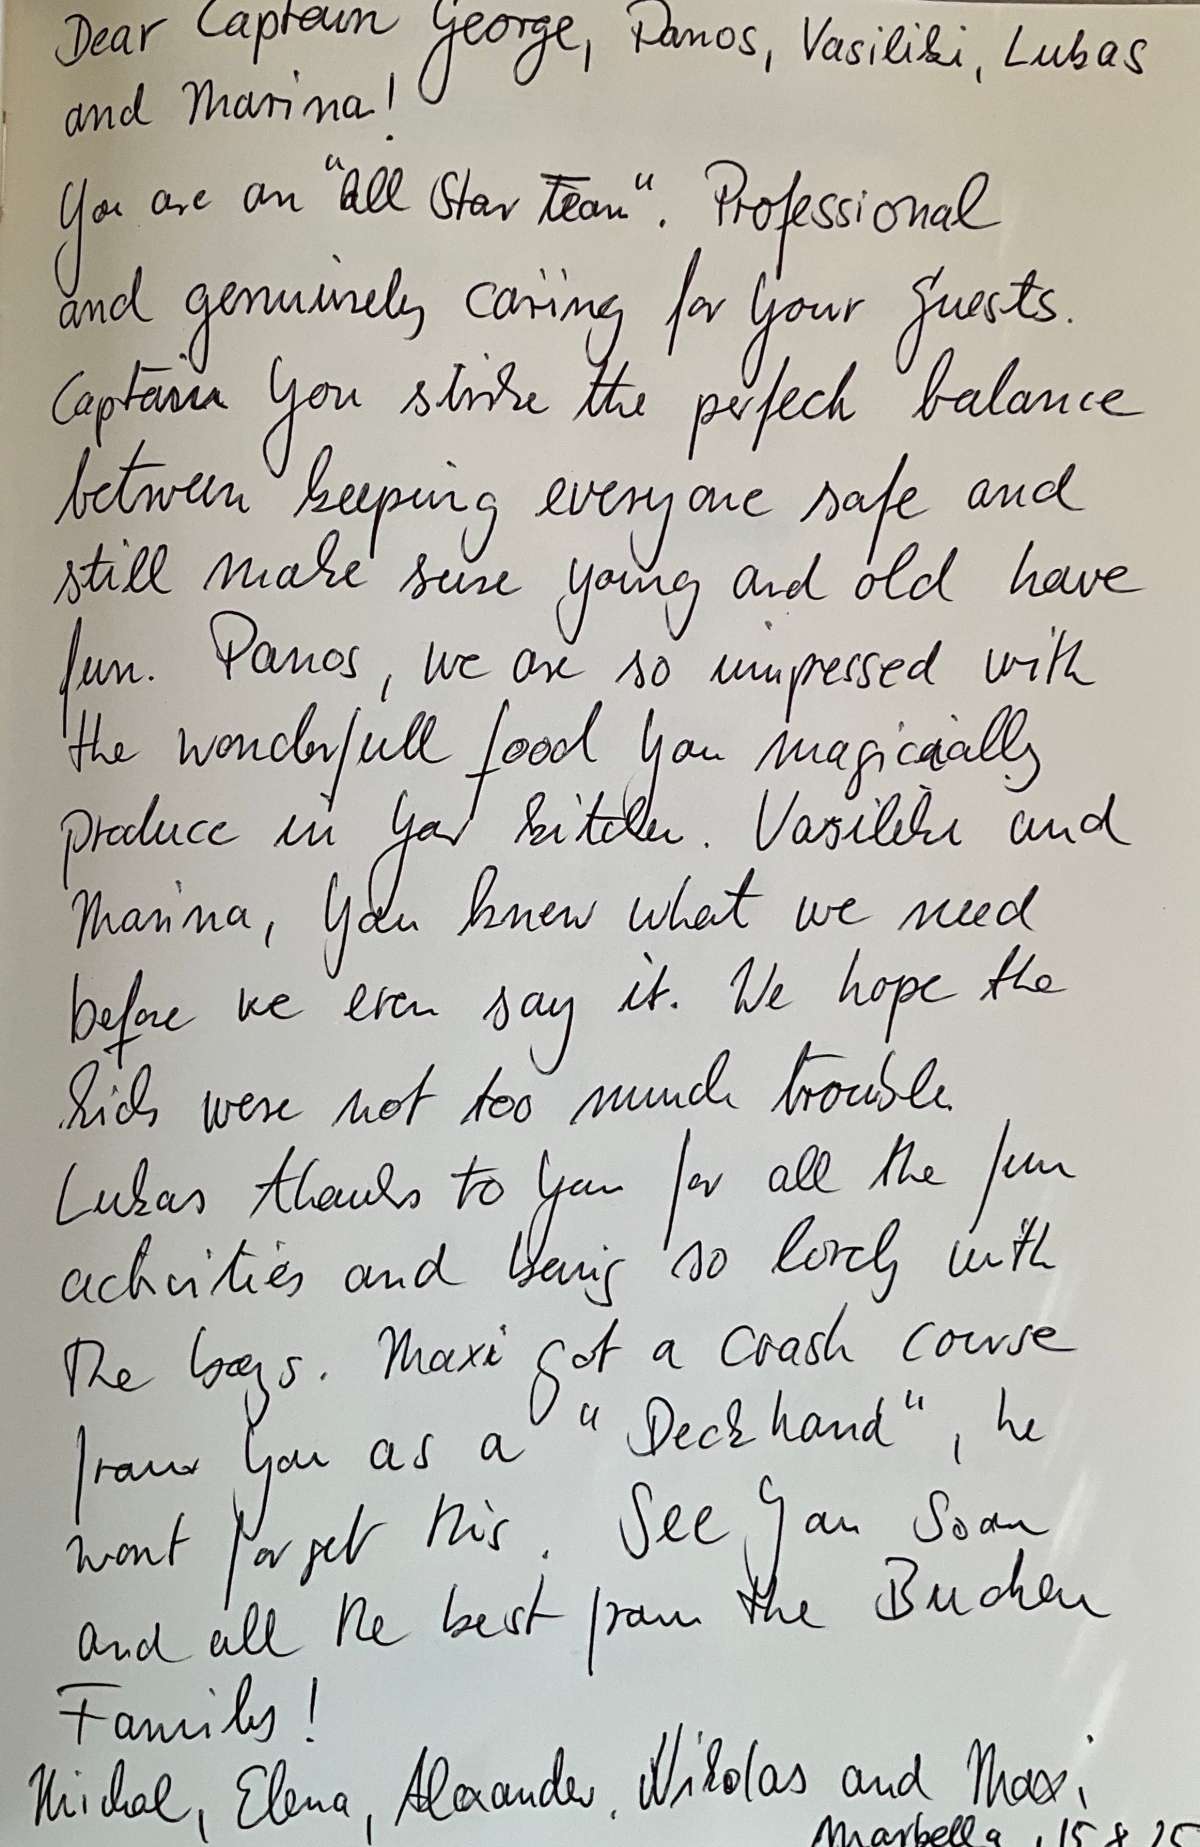 Dear Captain George, Panos, Vasiliki, Lukas
and Marina!
You are an "All Star Team". Professional
and genuinely caring for your guests.
Captain You strike the perfect balance
between keeping everyone safe and
still make sure young and old have
fun. Panos, we are so impressed with
the wonderfull food you magicially
produce in your kitchen. Vasiliki and
Marina, You knew what we need
before we even say it. We hope the
kids were not too much trouble.
Lukas thanks to you for all the fun
activities and being so lovely with
the boys. Maxi got a crash course
from you as a "Deckhand", he
wont forget this. See You Soon
and all the best from the
Family!
Michal, Elena, Alexander, Nikolas and Maxi
Marbella, 15.8.25